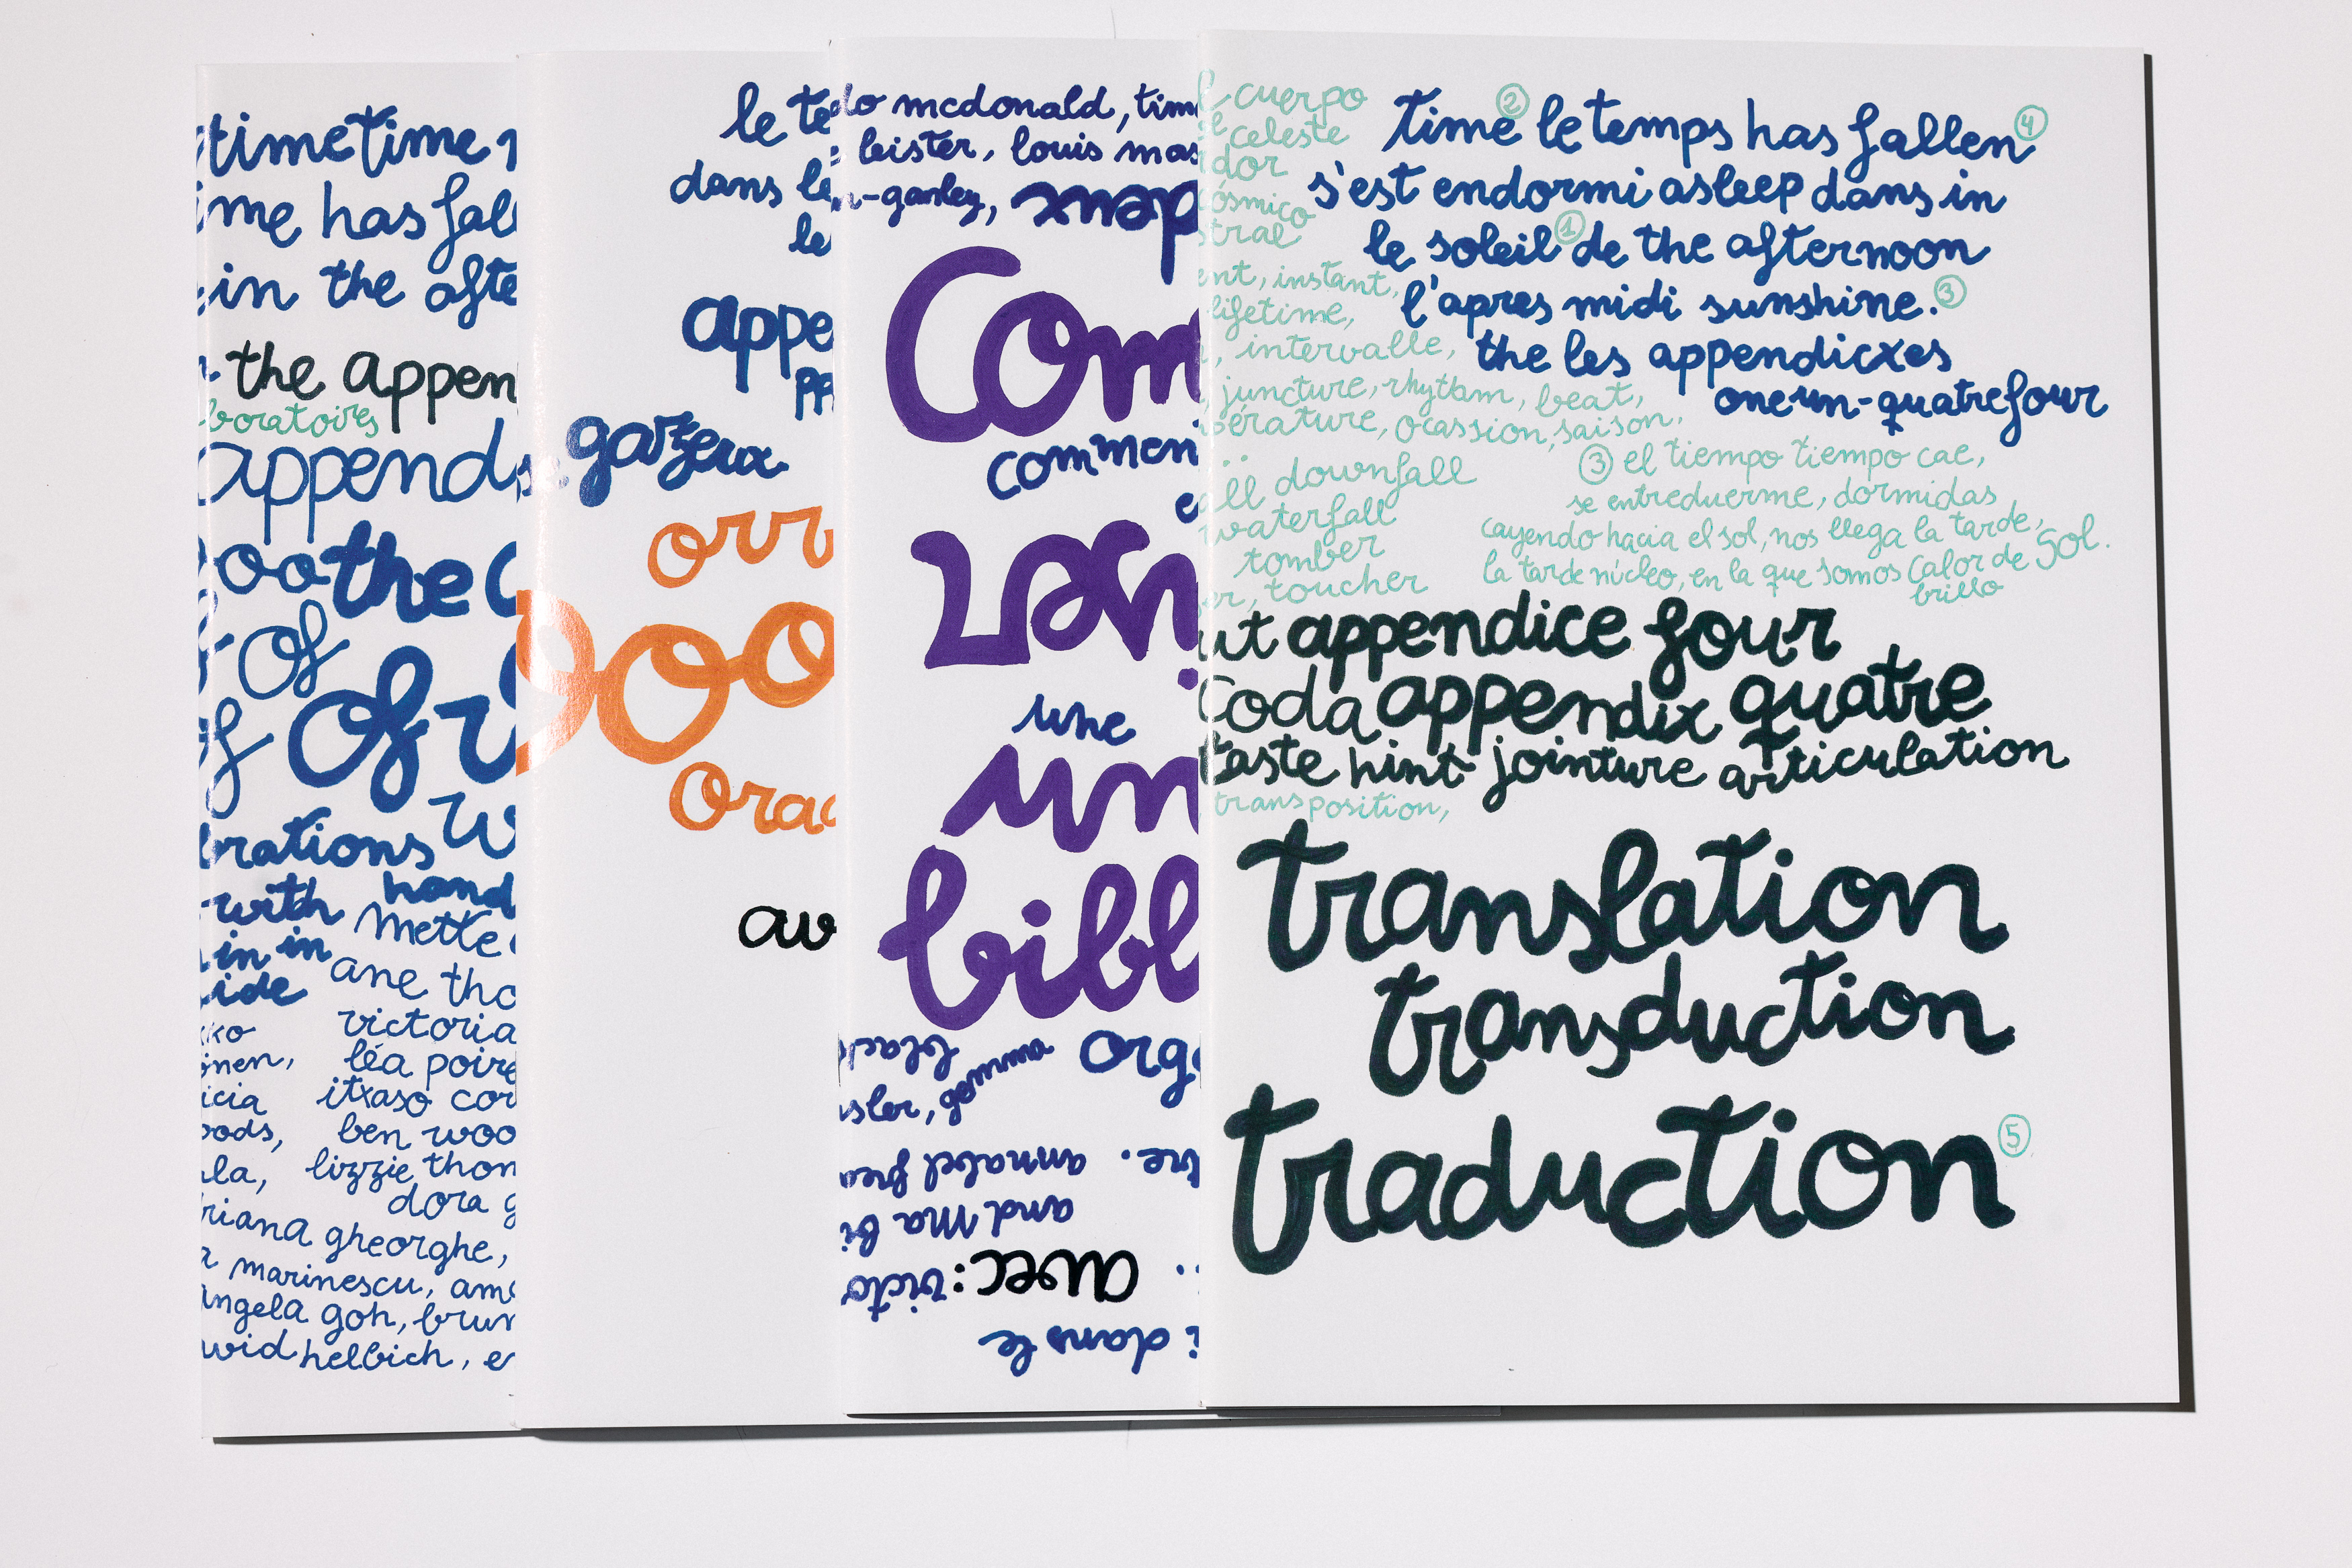 timetime
me has fal
in the afte
the appen
boratoires
append
oo the
of
of of
rations w
with hand
mette
in in
ane tho
ide
victoria
nen, léa poire
icia itxaso cor
oods, ben woo
la, lizzie thom
dora g
riana gheorghe,
marinescu, am
angela goh, brun
avid helbich, e
le te
dans le
le
appe
PA
gazeux
orr
ooo
orac
av
do mcdonald, tim
leister, louis mas
n-ganley, deux
Com
commen
e
une
un
bibl
blac
sler,
annabel
and ma bi
avec: victo
dans le
cuerpo
celeste
dor
cósmico
stral
ent, instant,
lifetime,
, intervalle,
, juncture, rhythm, beat,
pérature, ocassion, saison,
all downfall
waterfall
tomber
er, toucher
time② le temps has fallen④
s'est endormi asleep dans in
le soleil① de the afternoon
l'apres midi sunshine.③
the les appendicxes
one un-quatre four
③ el tiempo tiempo cae,
se entreduerme, dormidas
cayendo hacia el sol, nos llega la tarde,
la tarde núcleo, en la que somos calor de sol.
brillo
ut appendice four
coda appendix quatre
taste hint jointure articulation
transposition,
translation
transduction
traduction⑤